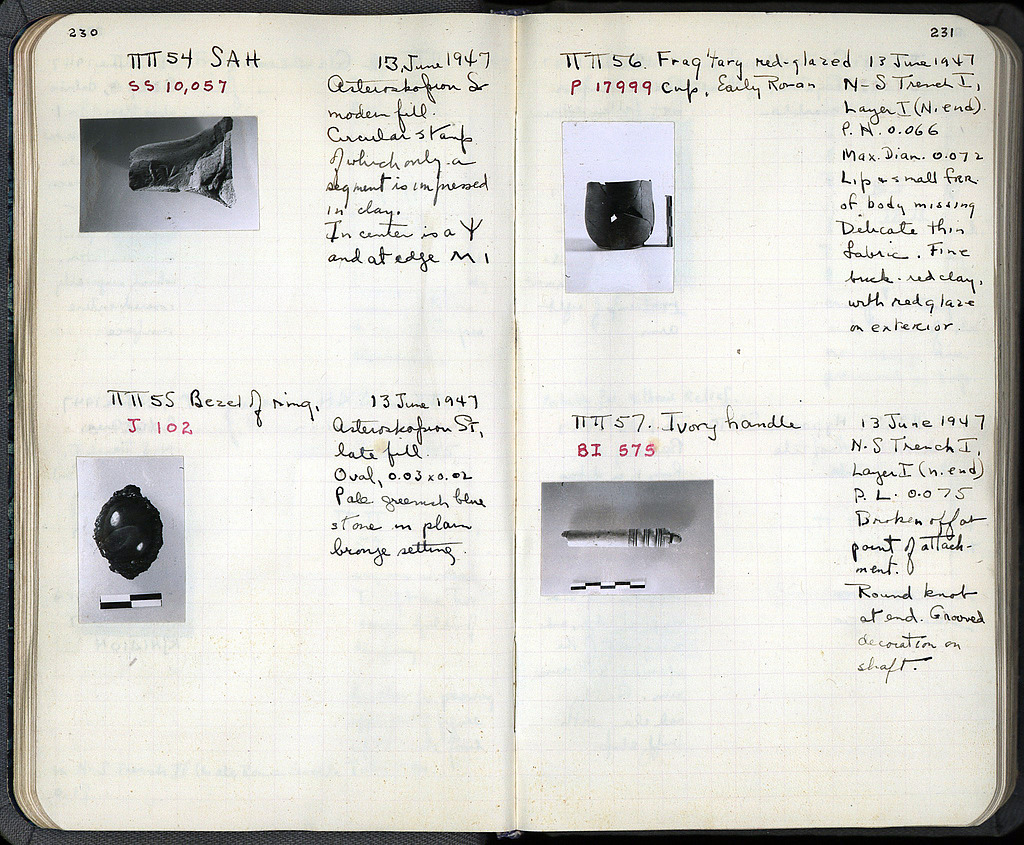 230
ΠΠ 54 SAH 13 June 1947
SS 10,057
Asteroskopion St
modern fill.
Circular stamp
of which only a
segment is impressed
in clay.
In center is a Ψ
and at edge M I
ΠΠ 55 Bezel of ring. 13 June 1947
J 102
Asteroskopion St,
late fill.
Oval, 0.03 x 0.02
Pale greenish blue
stone in plain
bronze setting.
231
ΠΠ 56. Frag'tary red-glazed 13 June 1947
P 17999 cup, Early Roman
N-S Trench I,
Layer I (N. end).
P. H. 0.066
Max. Diam. 0.072
Lip & small frag.
of body missing
Delicate thin
fabric. Fine
buck-red clay,
with red glaze
on exterior.
ΠΠ 57. Ivory handle 13 June 1947
BI 575
N-S Trench I,
Layer I (N. end)
P. L. 0.075
Broken off at
point of attach-
ment.
Round knob
at end. Grooved
decoration on
shaft.